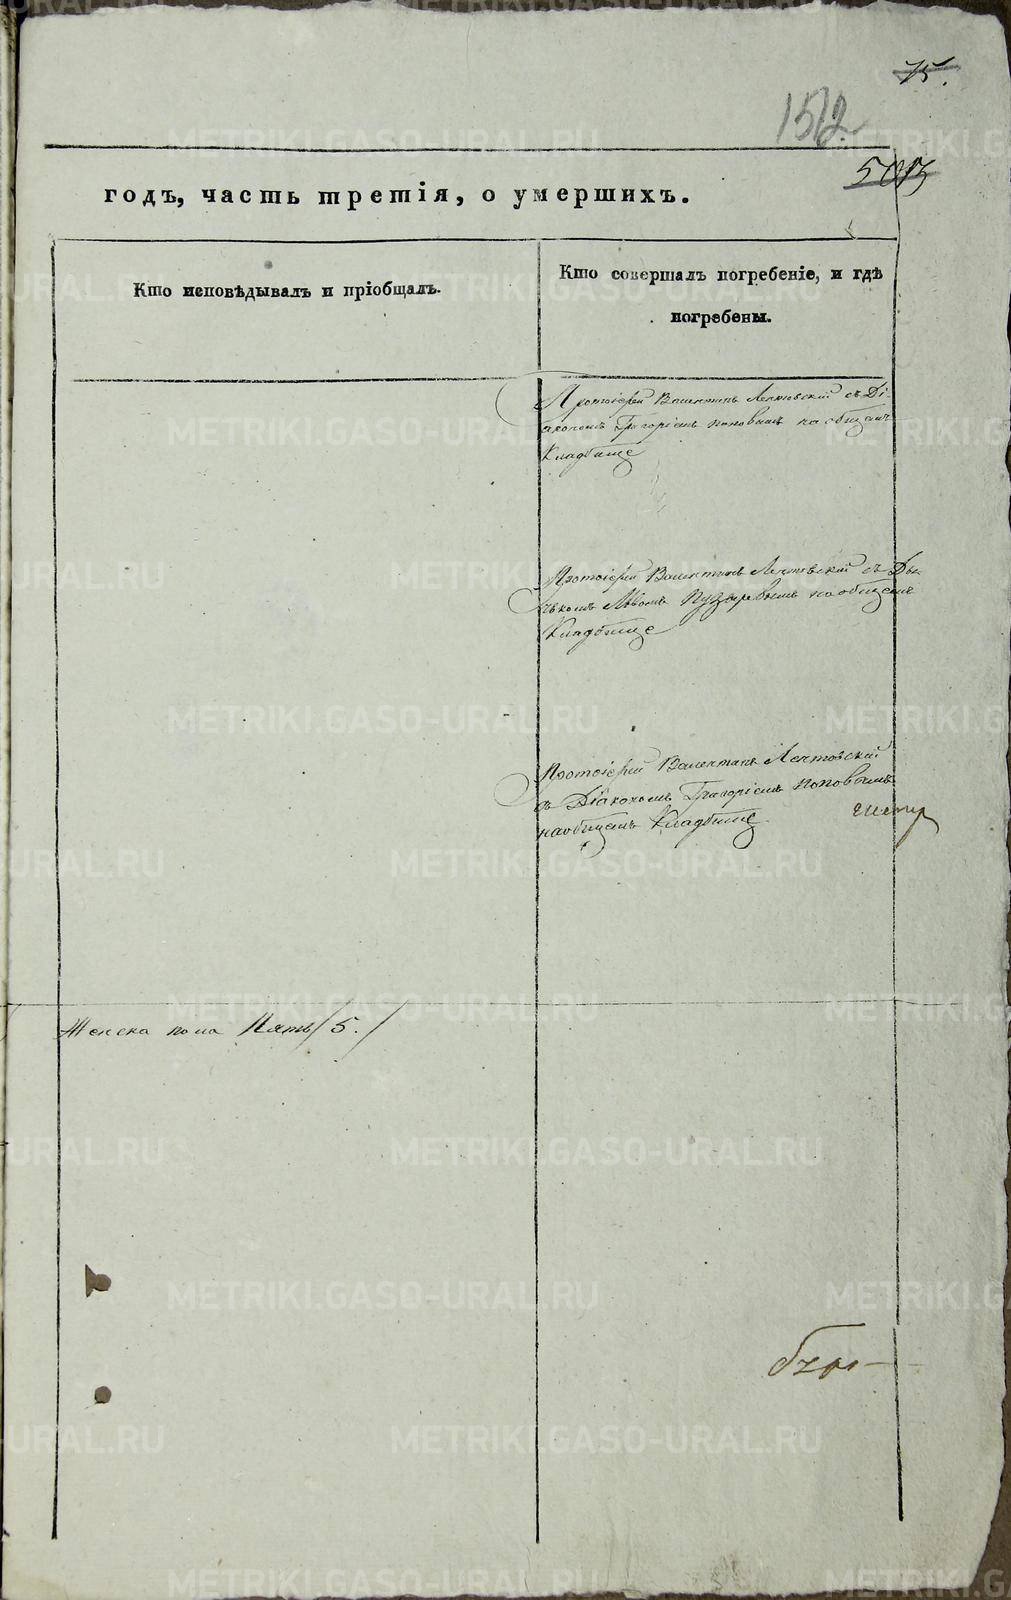 75.
1512
годъ, часть третія, о умершихъ.
Кто исповѣдывалъ и пріобщалъ.
Кто совершалъ погребеніе, и гдѣ
погребены.
Протоіерей Валентинъ Лентовскій съ Ді-
акономъ Григоріемъ Поповымъ на общемъ
Кладбище
Протоіерей Валентинъ Лентовскій съ Дья-
чкомъ Львомъ Пузыревымъ на общемъ
Кладбище
Протоіерей Валентинъ Лентовскій
съ Діакономъ Григоріемъ Поповымъ
на общемъ Кладбище.
Женска пола Пять /5./
METRIKI.GASO-URAL.RU